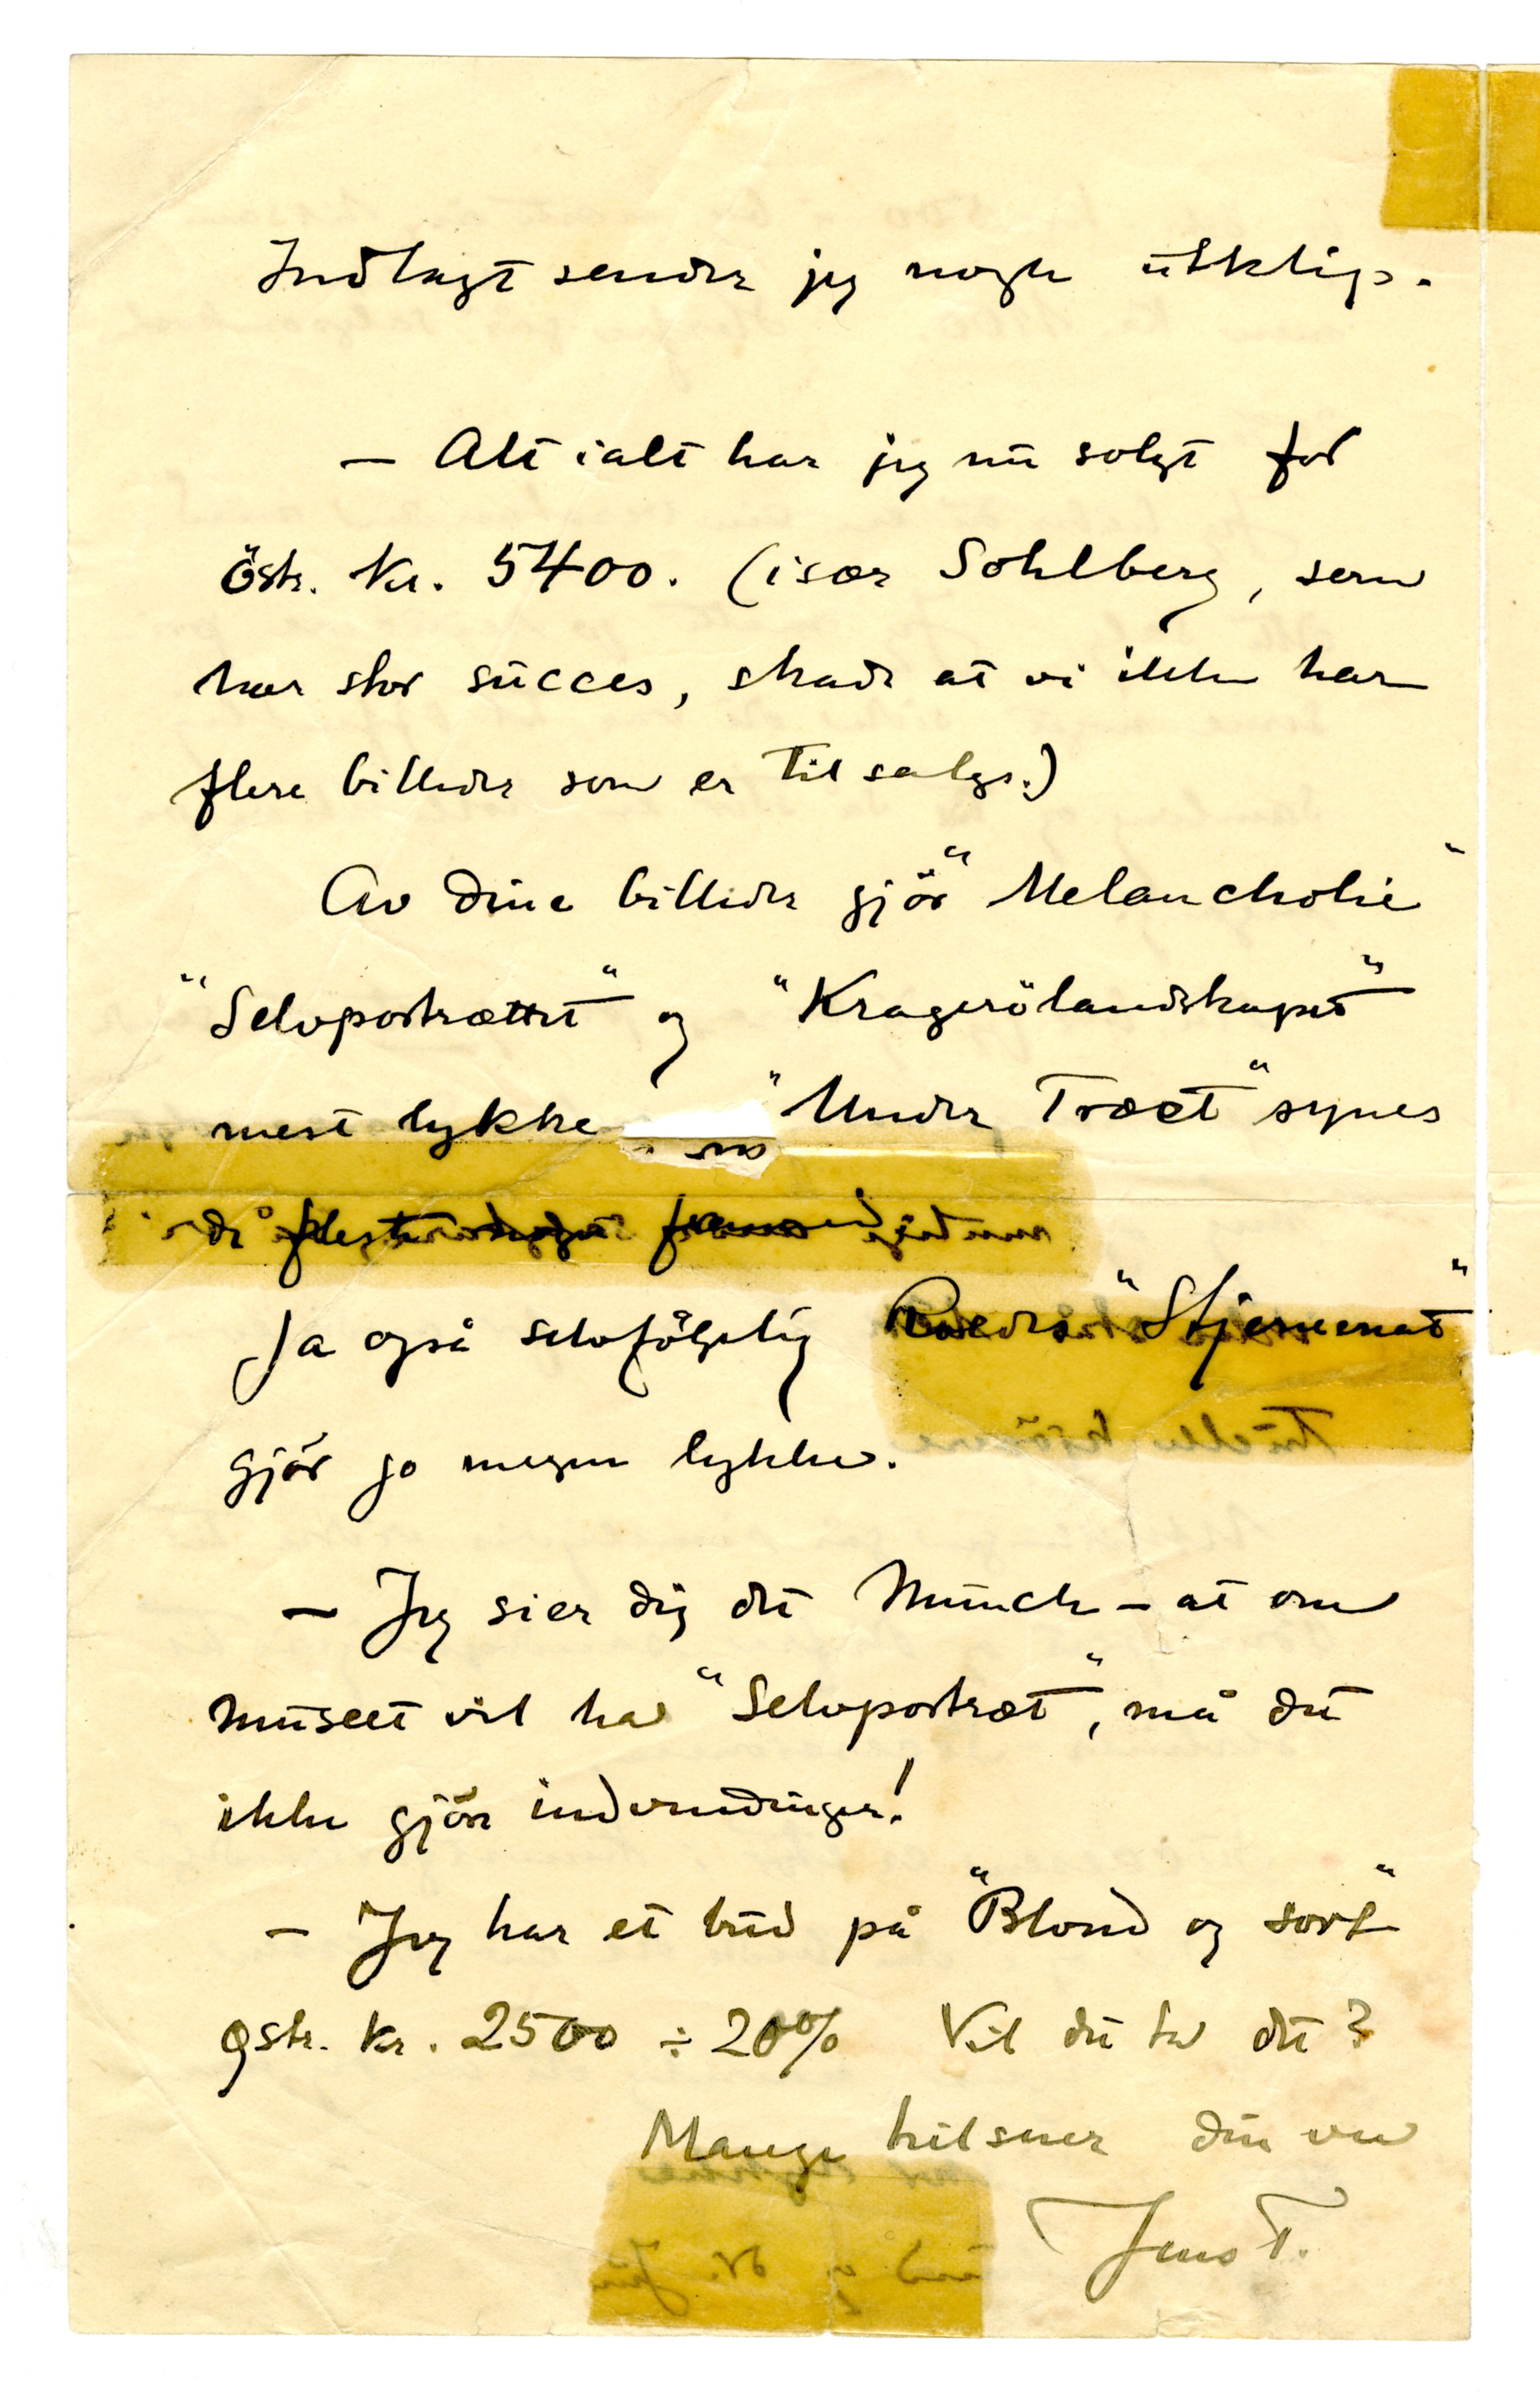 Indlagt sender jeg nogle utklip.
— Alt ialt har jeg nu solgt for
östr. kr. 5400. (især Sohlberg, som
har stor succes, skade at vi ikke har
flere billeder som er til salgs.)
Av dine billeder gjör "Melancholie"
"Selvportrættet" og "Kragerölandskapet"
mest lykke "Under Træet" synes
de fleste
Ja også selvfölgelig "Stjernenat"
gjör jo megen lykke.
— Jeg sier dig det Munch — at om
museet vil ha "Selvportræt", må du
ikke gjöre indvendinger!
— Jeg har et bud på "Blond og sort"
östr. kr. 2500 ÷ 20% Vil du ta det?
Mange hilsner din ven
Jens T.